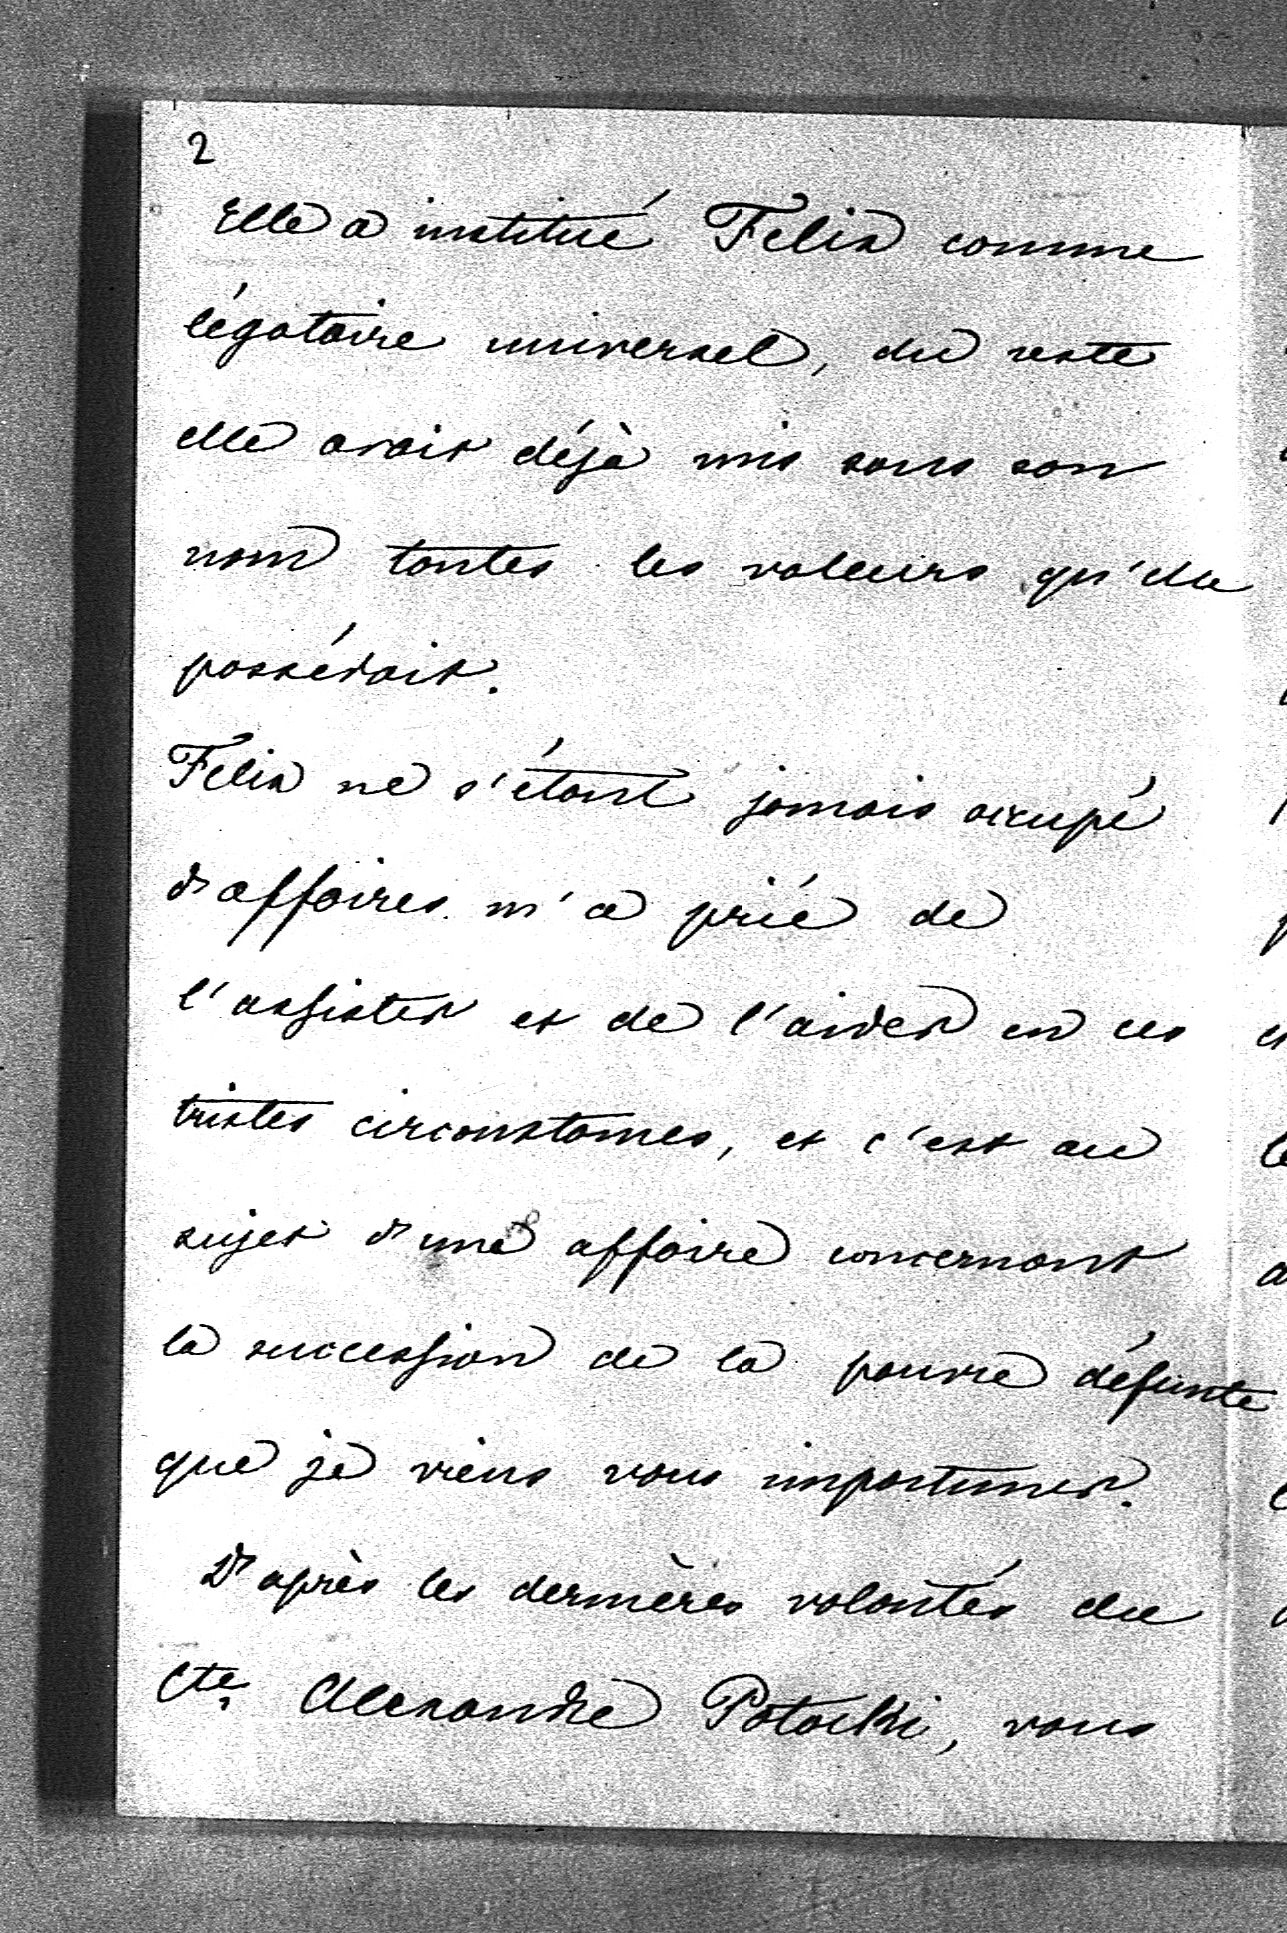 2
Elle a institué Felix comme
légataire universel, du reste
elle avait déjà mis sous son
nom toutes les valeurs qu'elle
possédait.
Felix ne s'étant jamais occupé
d'affaires m'a prié de
l'assister et de l'aider en ces
tristes circonstances, et c'est au
sujet d'une affaire concernant
la succession de la pauvre défunte
que je viens vous importuner.
D'après les dernières volontés du
Cte Alexandre Potocki, vous